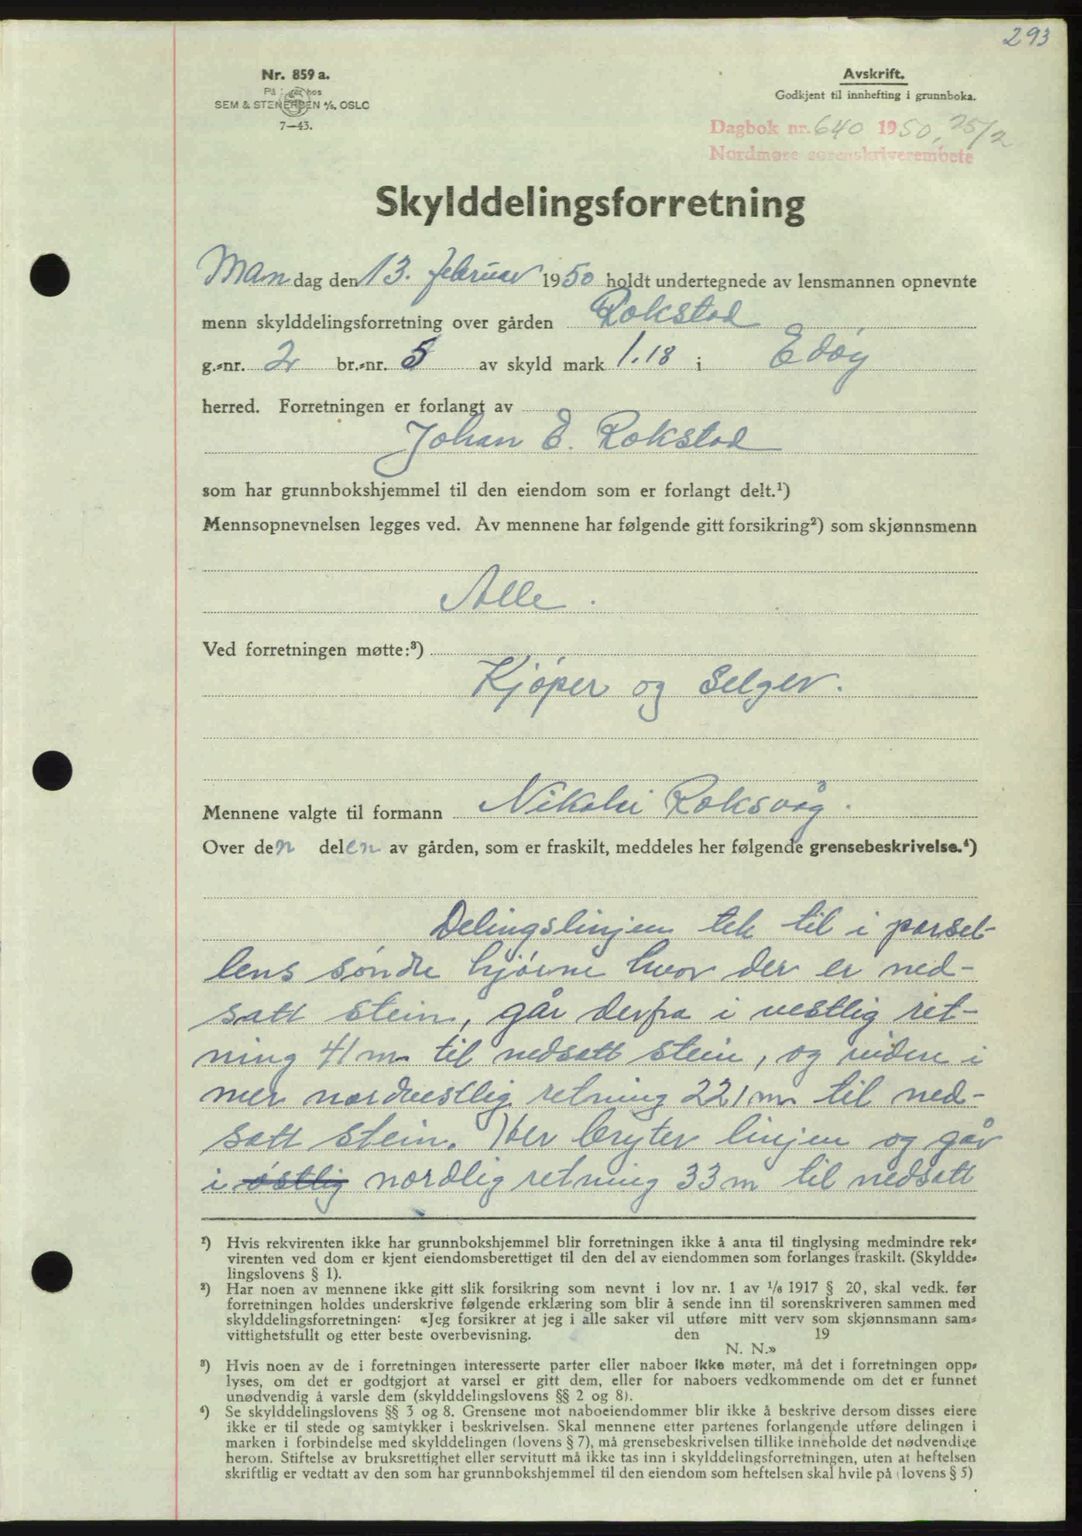 293
Nr. 859 a.
På lager hos
SEM & STENERSEN A/S, OSLO
7—43.
Avskrift.
Godkjent til innhefting i grunnboka.
Dagbok nr. 640 1950, 25/2
Nordmøre sorenskriverembete
Skylddelingsforretning
Mandag den 13. februar 1950 holdt undertegnede av lensmannen opnevnte
menn skylddelingsforretning over gården Rokstad
g.-nr. 2 br.-nr. 5 av skyld mark 1.18 i Edøy
herred. Forretningen er forlangt av
Johan E. Rokstad
som har grunnbokshjemmel til den eiendom som er forlangt delt.¹)
Mennsopnevnelsen legges ved. Av mennene har følgende gitt forsikring²) som skjønnsmenn
Alle.
Ved forretningen møtte:³)
Kjøper og Selger.
Mennene valgte til formann Nikolai Roksvåg.
Over den delen av gården, som er fraskilt, meddeles her følgende grensebeskrivelse.⁴)
Delingslinjen tek til i parsel-
lens søndre hjørne hvor der er ned-
satt stein, går derfra i vestlig ret-
ning 41 m til nedsatt stein, og videre i
mer nordvestlig retning 221 m til ned-
satt stein. Her bryter linjen og går
i østlig nordlig retning 33 m til nedsatt
¹) Hvis rekvirenten ikke har grunnbokshjemmel blir forretningen ikke å anta til tinglysing medmindre rek-
virenten ved dom er kjent eiendomsberettiget til den del av eiendommen som forlanges fraskilt. (Skyldde-
lingslovens § 1).
²) Har noen av mennene ikke gitt slik forsikring som nevnt i lov nr. 1 av 1/6 1917 § 20, skal vedk. før
forretningen holdes underskrive følgende erklæring som blir å sende inn til sorenskriveren sammen med
skylddelingsforretningen: «Jeg forsikrer at jeg i alle saker vil utføre mitt verv som skjønnsmann sam-
vittighetsfullt og etter beste overbevisning. den 19
N. N.»
³) Hvis noen av de i forretningen interesserte parter eller naboer ikke møter, må det i forretningen opp-
lyses, om det er godtgjort at varsel er gitt dem, eller for naboers vedkommende om det er funnet
unødvendig å varsle dem (skylddelingslovens §§ 2 og 8).
⁴) Se skylddelingslovens §§ 3 og 8. Grensene mot naboeiendommer blir ikke å beskrive dersom disses eiere
ikke er til stede og samtykker i beskrivelsen. Skal mennene etter partenes forlangende utføre delingen i
marken i forbindelse med skylddelingen (lovens § 7), må grensebeskrivelsen tillike inneholde det nødvendige
herom. Stiftelse av bruksrettighet eller servitutt må ikke tas inn i skylddelingsforretningen, uten at heftelsen
skriftlig er vedtatt av den som har grunnbokshjemmel til den eiendom som heftelsen skal hvile på (lovens § 5)